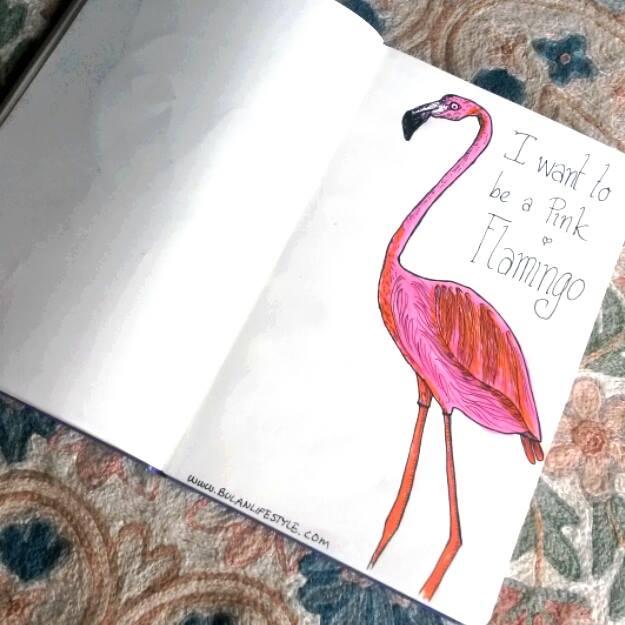 I want to
be a Pink
Flamingo
www.BULANLIFESTYLE.COM